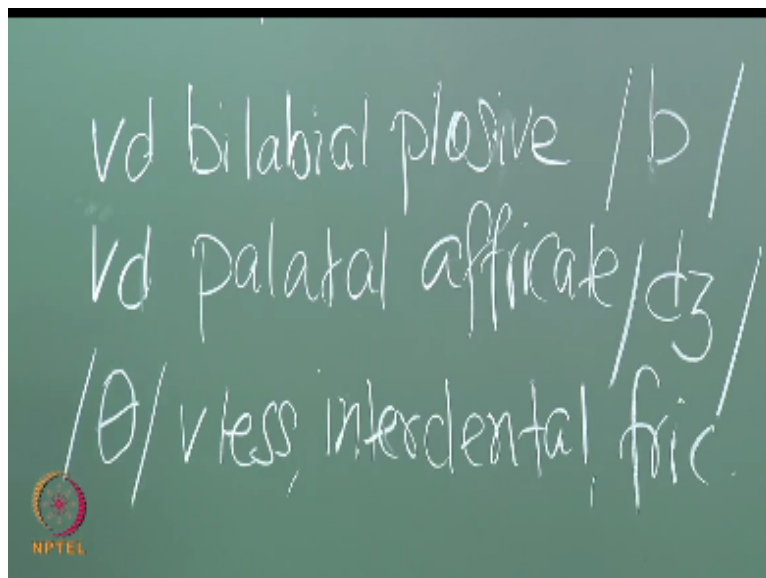 vd bilabial plosive /b/
vd palatal affricate /dʒ/
/θ/ vless, interdental, fric.
NPTEL